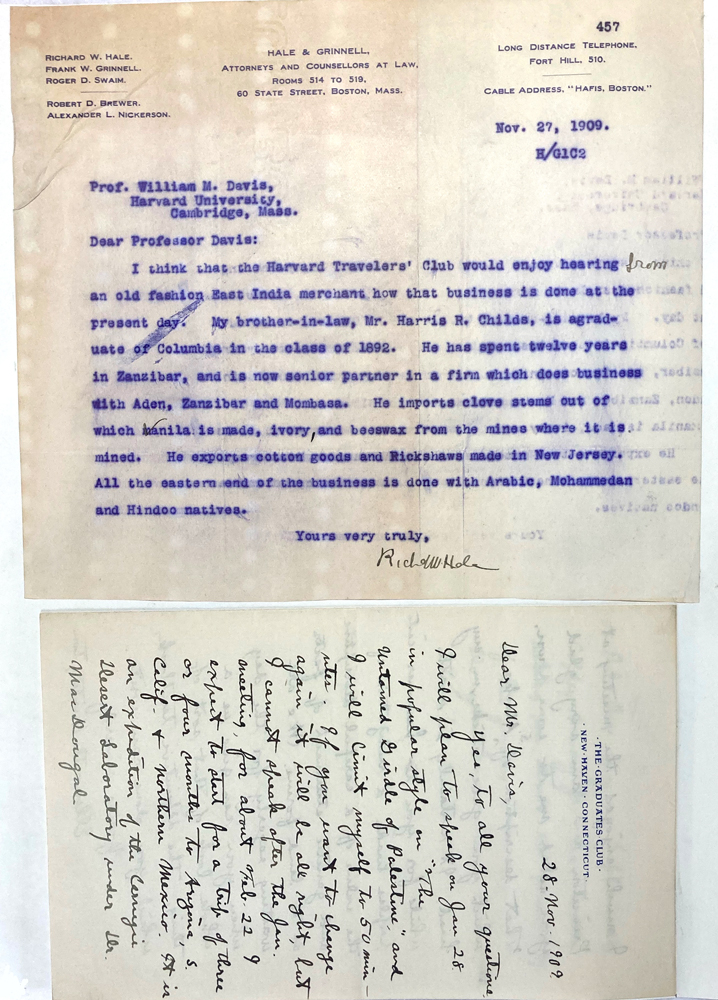 457
RICHARD W. HALE.
FRANK W. GRINNELL.
ROGER D. SWAIM.
ROBERT D. BREWER.
ALEXANDER L. NICKERSON.
HALE & GRINNELL,
ATTORNEYS AND COUNSELLORS AT LAW,
ROOMS 514 TO 519,
60 STATE STREET, BOSTON, MASS.
LONG DISTANCE TELEPHONE,
FORT HILL, 510.
CABLE ADDRESS, "HAFIS, BOSTON."
Nov. 27, 1909.
H/G1C2
Prof. William M. Davis,
Harvard University,
Cambridge, Mass.
Dear Professor Davis:
I think that the Harvard Travelers' Club would enjoy hearing from
an old fashion East India merchant how that business is done at the
present day. My brother-in-law, Mr. Harris R. Childs, is agrad-
uate of Columbia in the class of 1892. He has spent twelve years
in Zanzibar, and is now senior partner in a firm which does business
with Aden, Zanzibar and Mombasa. He imports clove stems out of
which vanila is made, ivory, and beeswax from the mines where it is
mined. He exports cotton goods and Rickshaws made in New Jersey.
All the eastern end of the business is done with Arabic, Mohammedan
and Hindoo natives.
Yours very truly,
Richd W Hale
·THE·GRADUATES CLUB·
·NEW·HAVEN·CONNECTICUT·
28·Nov. 1909.
Dear Mr. Davis,
Yes, to all your questions.
I will plan to speak on Jan 28
in popular style on "The
Untamed Girdle of Palestine," and
I will limit myself to 50 min-
utes. If you want to change
again it will be all right, but
I cannot speak after the Jan.
meeting, for about Feb. 22 I
expect to start for a trip of three
or four months to Arizona, S.
Calif. & northern Mexico. It is
an expedition of the Carnegie
Desert Laboratory under Dr.
MacDougal